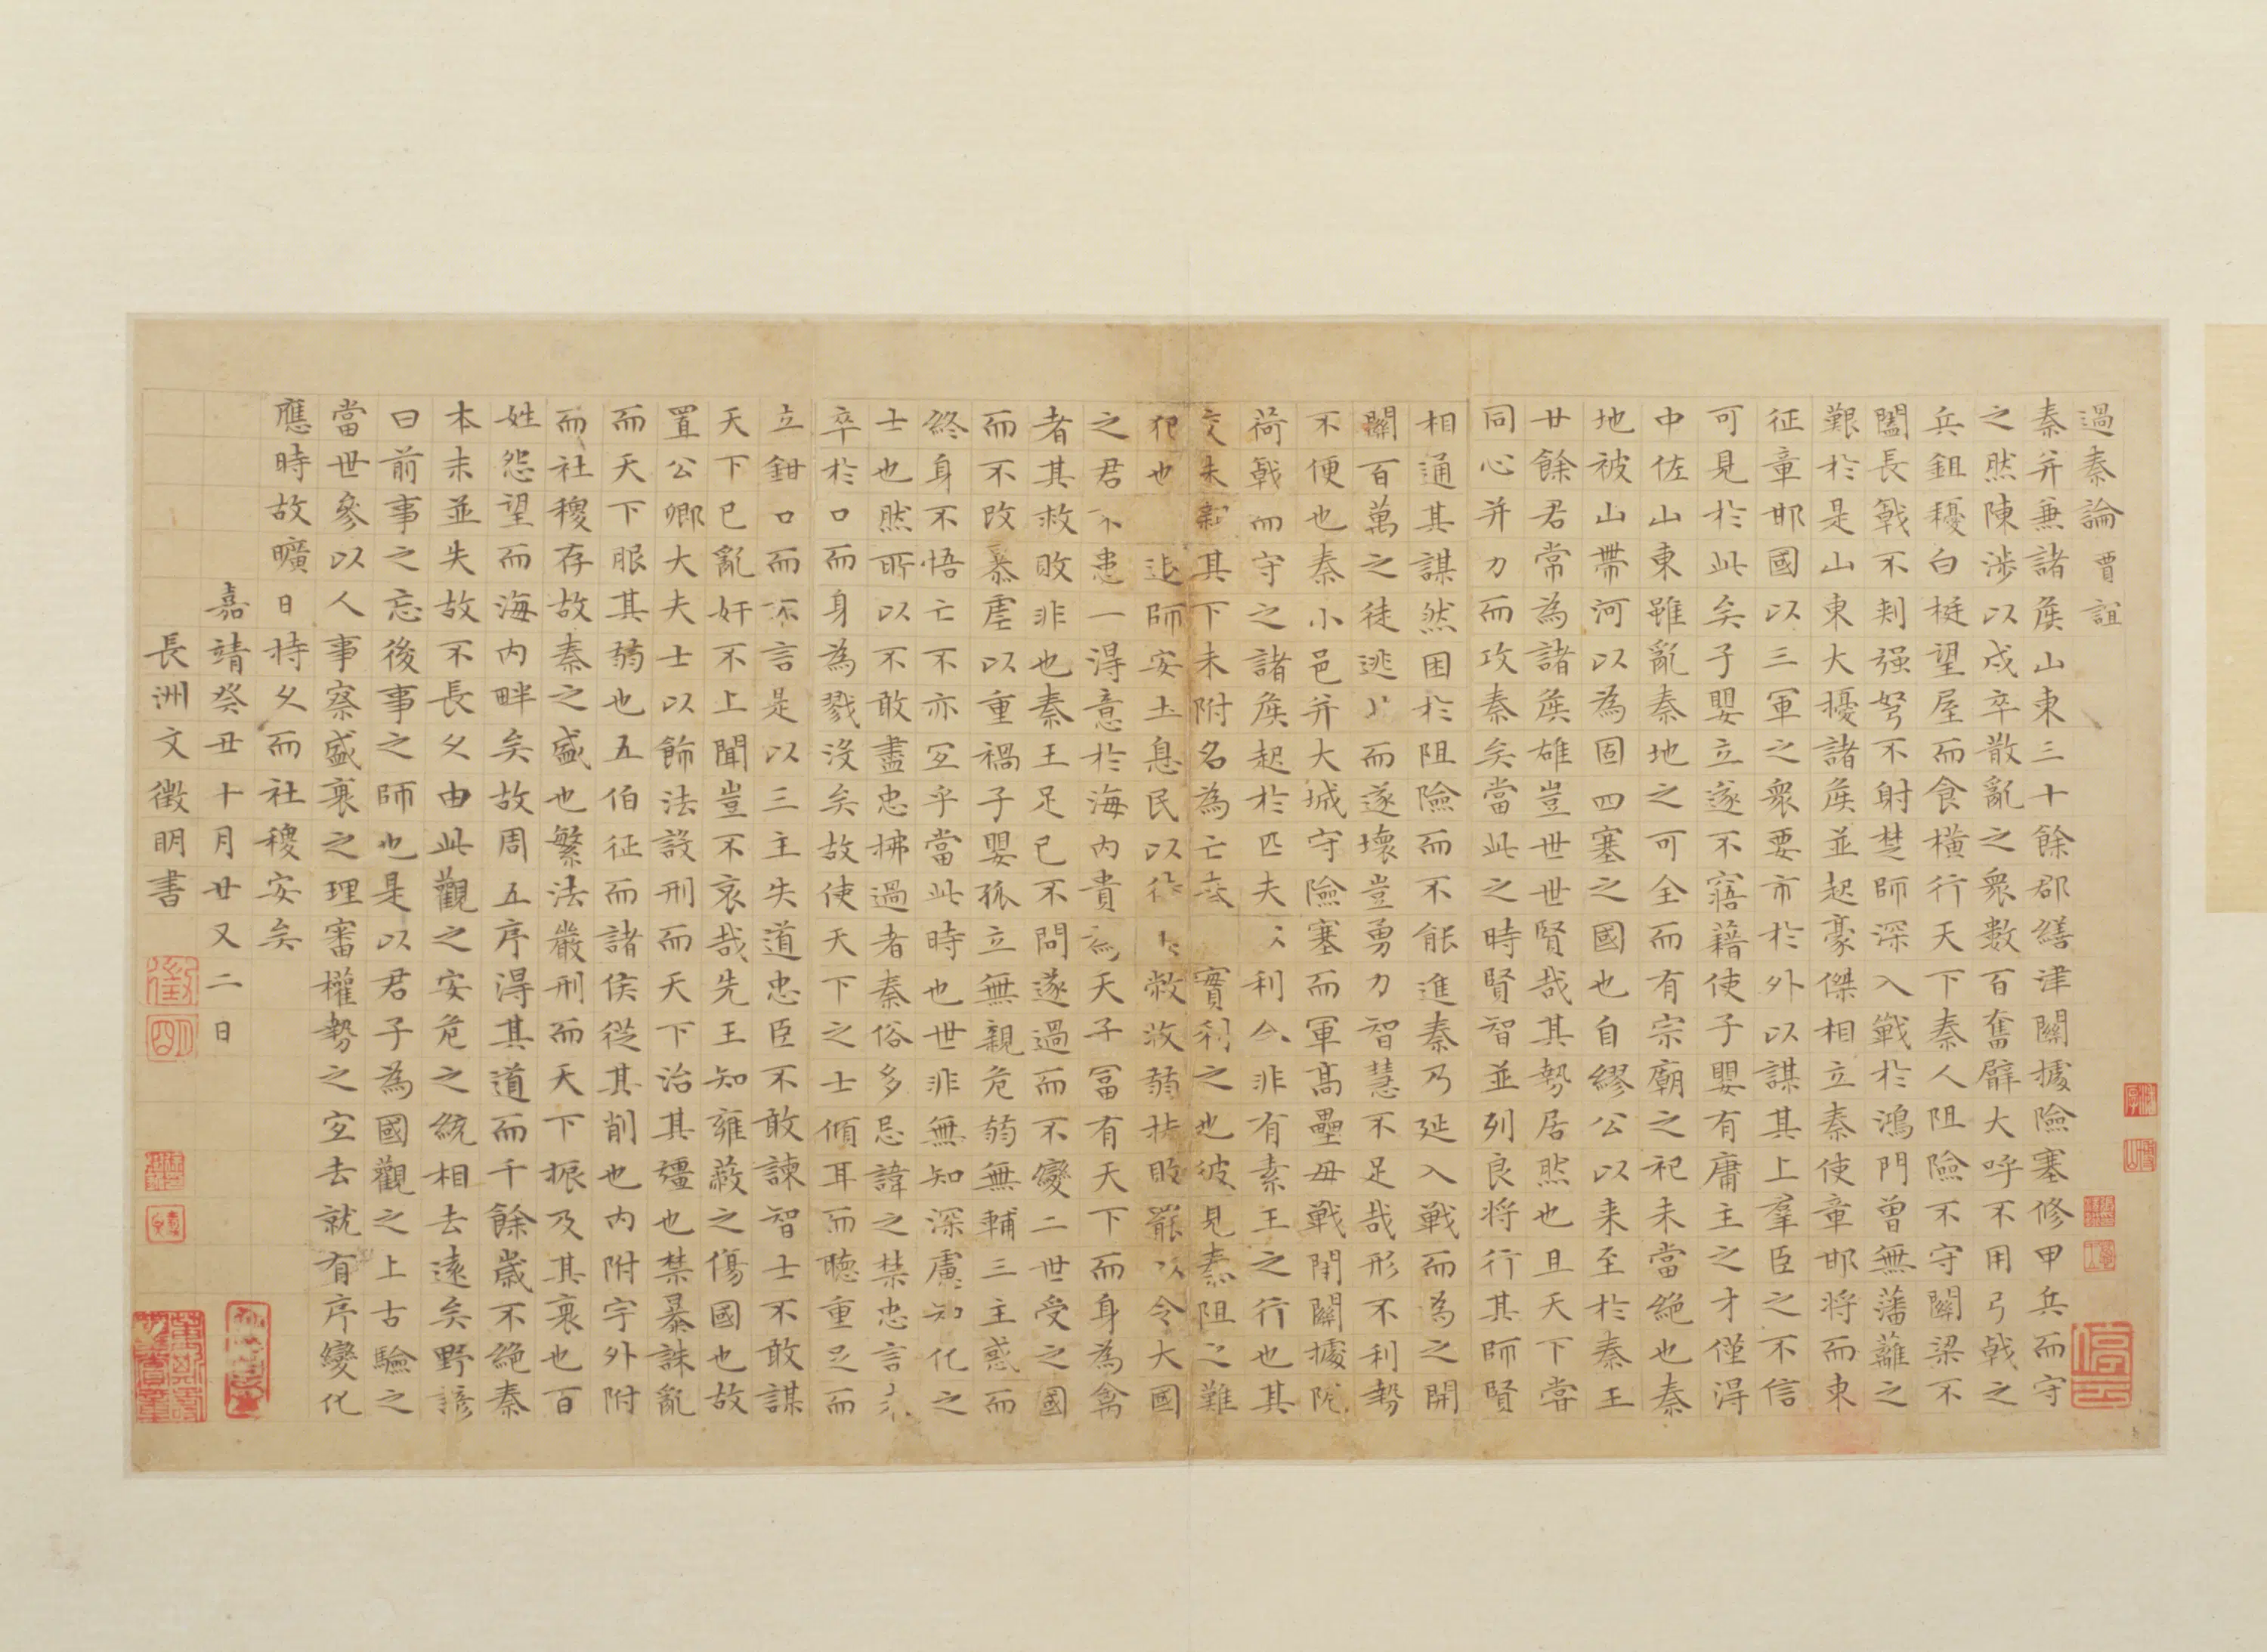 過秦論 賈誼
秦并兼諸矦山東三十餘郡繕津關據險塞修甲兵而守
之然陳涉以戍卒散亂之衆數百奮臂大呼不用弓戟之
兵鉏櫌白梃望屋而食橫行天下秦人阻險不守關梁不
闔長戟不刺强弩不射楚師深入戰於鴻門曾無藩籬之
艱於是山東大擾諸矦並起豪傑相立秦使章邯將而東
征章邯國以三軍之衆要市於外以謀其上羣臣之不信
可見於此矣子嬰立遂不寤藉使子嬰有庸主之才僅得
中佐山東雖亂秦地之可全而有宗廟之祀未當絶也秦
地被山帶河以為固四塞之國也自繆公以来至於秦王
廿餘君常為諸矦雄豈世世賢哉其勢居然也且天下甞
同心并力而攻秦矣當此之時賢智並列良將行其師賢
相通其謀然困於阻險而不能進秦乃延入戰而為之開
關百萬之徒逃而遂壞豈勇力智慧不足哉形不利勢
不便也秦小邑并大城守險塞而軍高壘毋戰閉關據阨
荷戟而守之諸矦起於匹夫利合非有素王之行也其
交未親其下未附名為亡實利之也彼見秦阻之難
犯也退師安土息民以待敝收弱扶敗罷以令大國
之君不患一得意於海內貴為天子冨有天下而身為禽
者其救敗非也秦王足已不問遂過而不變二世受之國
而不改暴虐以重禍子嬰孤立無親危弱無輔三主惑而
終身不悟亡不亦宜乎當此時也世非無知深慮知化之
士也然所以不敢盡忠拂過者秦俗多忌諱之禁忠言未
卒於口而身為戮沒矣故使天下之士傾耳而聽重足而
立鉗口而不言是以三主失道忠臣不敢諫智士不敢謀
天下已亂奸不上聞豈不哀哉先王知雍蔽之傷國也故
置公卿大夫士以飾法設刑而天下治其彊也禁暴誅亂
而天下服其弱也五伯征而諸侯從其削也內附宇外附
而社稷存故秦之盛也繁法嚴刑而天下振及其衰也百
姓怨望而海內畔矣故周五序得其道而千餘歲不絶秦
本末並失故不長久由此觀之安危之統相去遠矣野諺
曰前事之忘後事之師也是以君子為國觀之上古驗之
當世參以人事察盛衰之理審權勢之宜去就有序變化
應時故曠日持久而社稷安矣
嘉靖癸丑十月廿又二日
長洲文徵明書
徵明
停云